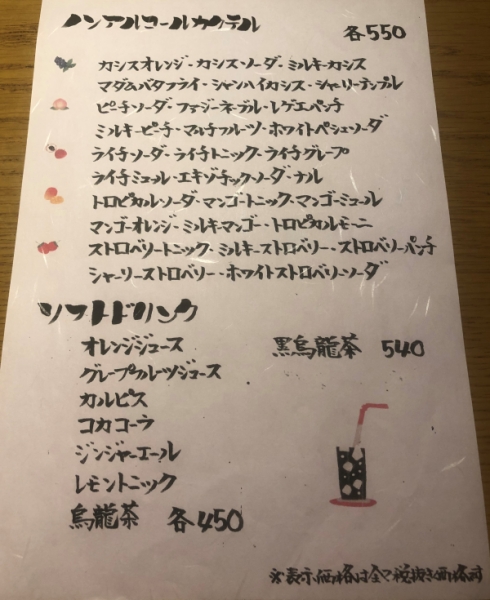 ノンアルコールカクテル 各550
カシスオレンジ・カシス・ソーダ・ミルキーカシス
マダム&バタフライ・シャンハイカシス・シャーリーテンプル
ピーチソーダ・ファジーネーブル・レゲエパンチ
ミルキーピーチ・マルチフルーツ・ホワイトペシェソーダ
ライチソーダ・ライチトニック・ライチグレープ
ライチミュール・エキゾチック・ソーダ・ナル
トロピカルソーダ・マンゴートニック・マンゴーミュール
マンゴーオレンジ・ミルキーマンゴー・トロピカルモーニ
ストロベリートニック・ミルキーストロベリー・ストロベリーパンチ
シャーリーストロベリー・ホワイトストロベリーソーダ
ソフトドリンク
オレンジジュース 黒烏龍茶 540
グレープフルーツジュース
カルピス
コカコーラ
ジンジャーエール
レモントニック
烏龍茶 各450
※表示価格は全て税抜き価格です